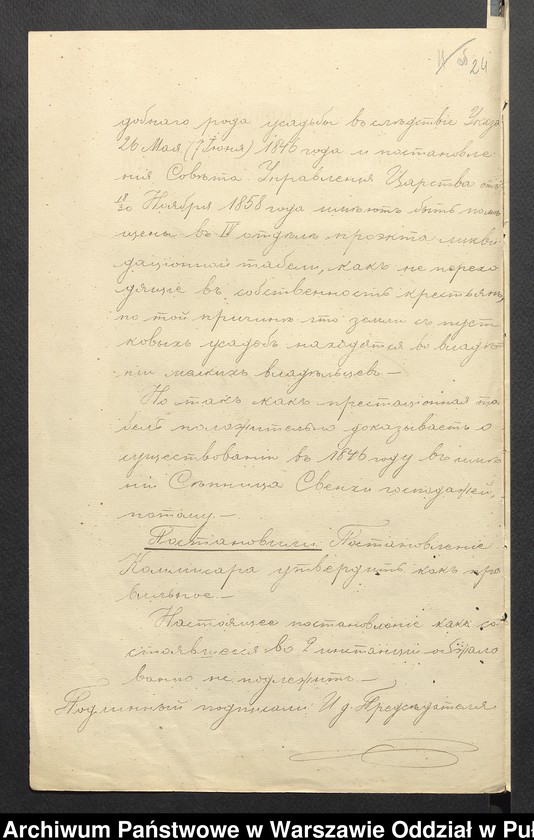 24
добнаго рода усадьбы вслѣдствіе Указа
26 Мая (7 Іюня) 1846 года и постановле
нія Совѣта Управленія Царства отъ
18/30 Ноября 1858 года имѣютъ быть помѣ
щены въ IV отдѣлъ проэкта ликви
даціонной табели, какъ не перехо
дящіе въ собственность крестьянъ,
по той причинѣ что земли съ пуст
ковыхъ усадебъ находятся во владѣ
ніи мелкихъ владѣльцевъ —
Но такъ какъ престаціонная та
бель положительно доказываетъ о
существованіи въ 1846 году въ имѣ
ніи Сѣнница Свенхи господажей,
потому —
Постановили Постановленіе
Коммисара утвердить какъ пра
вильное —
Настоящее постановленіе какъ со
стоявшееся во 2 инстанціи обжало
ванію не подлежитъ —
Подлинный подписали: И д. Предсѣдателя
Archiwum Państwowe w Warszawie Oddział w Puł